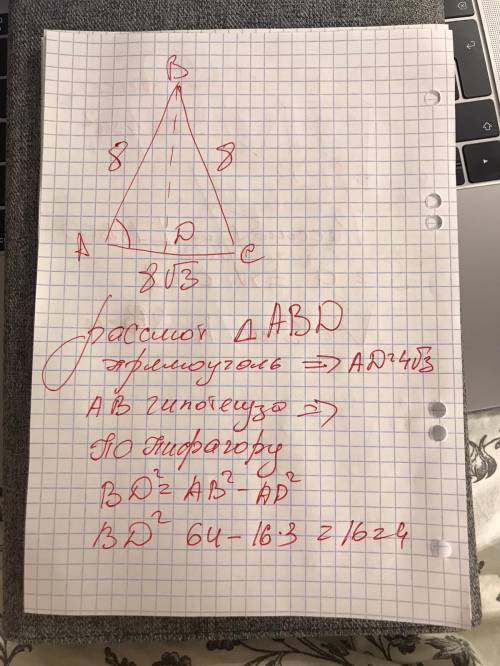 B
8 8
A D C
8√3
рассмот △ ABD
прямоуголь => AD=4√3
AB гипотенуза =>
По Пифагору
BD²= AB² - AD²
BD² 64 - 16·3 = 16 = 4